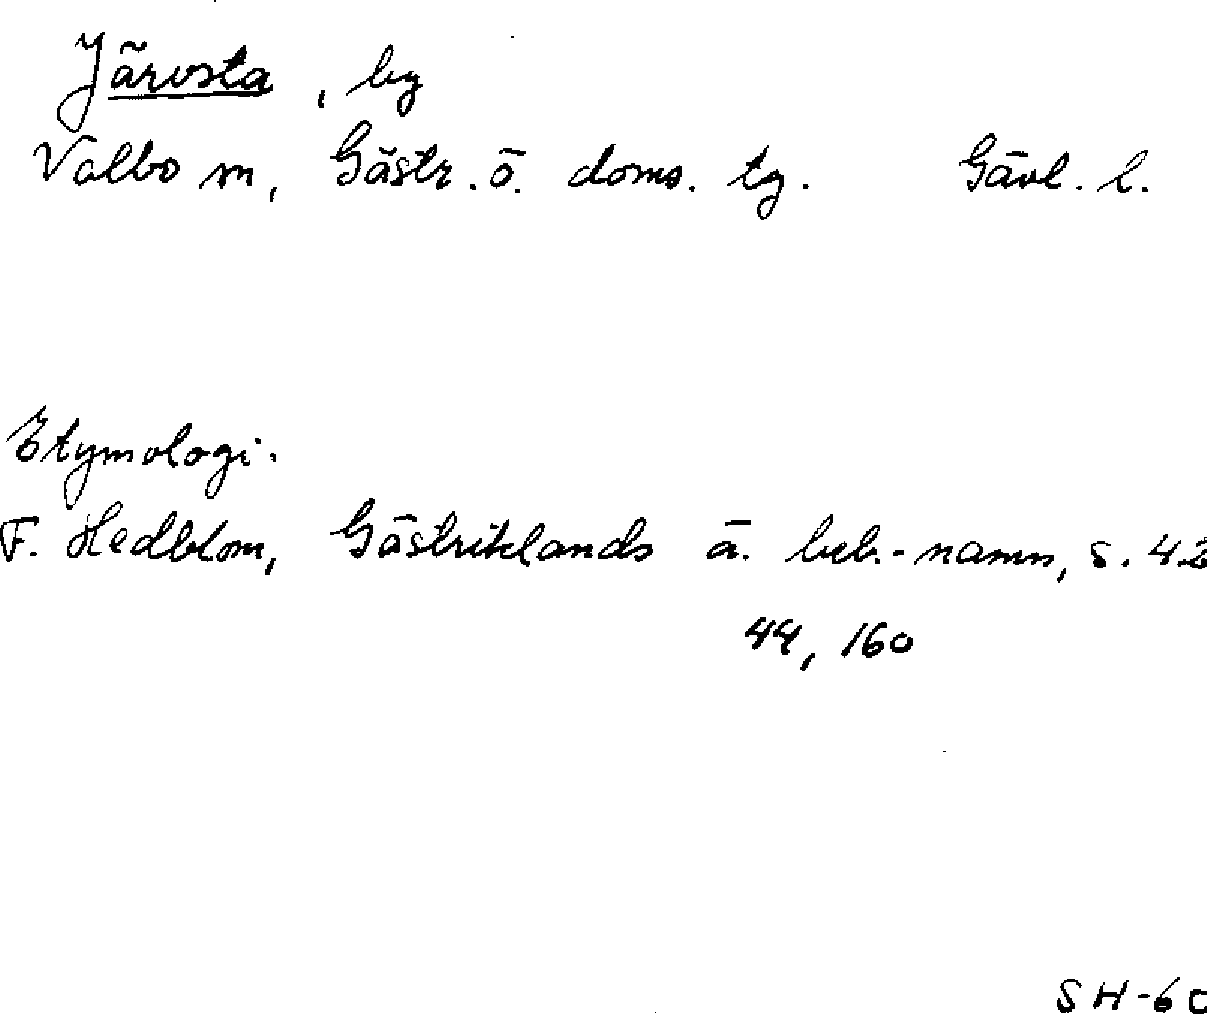 Järvsta, by
Valbo sn, Gästr. ö. doms. tg. Gävl. l.
Etymologi.
F. Hedblom, Gästriklands ä. beb.-namn, s. 42
44, 160
SH-60